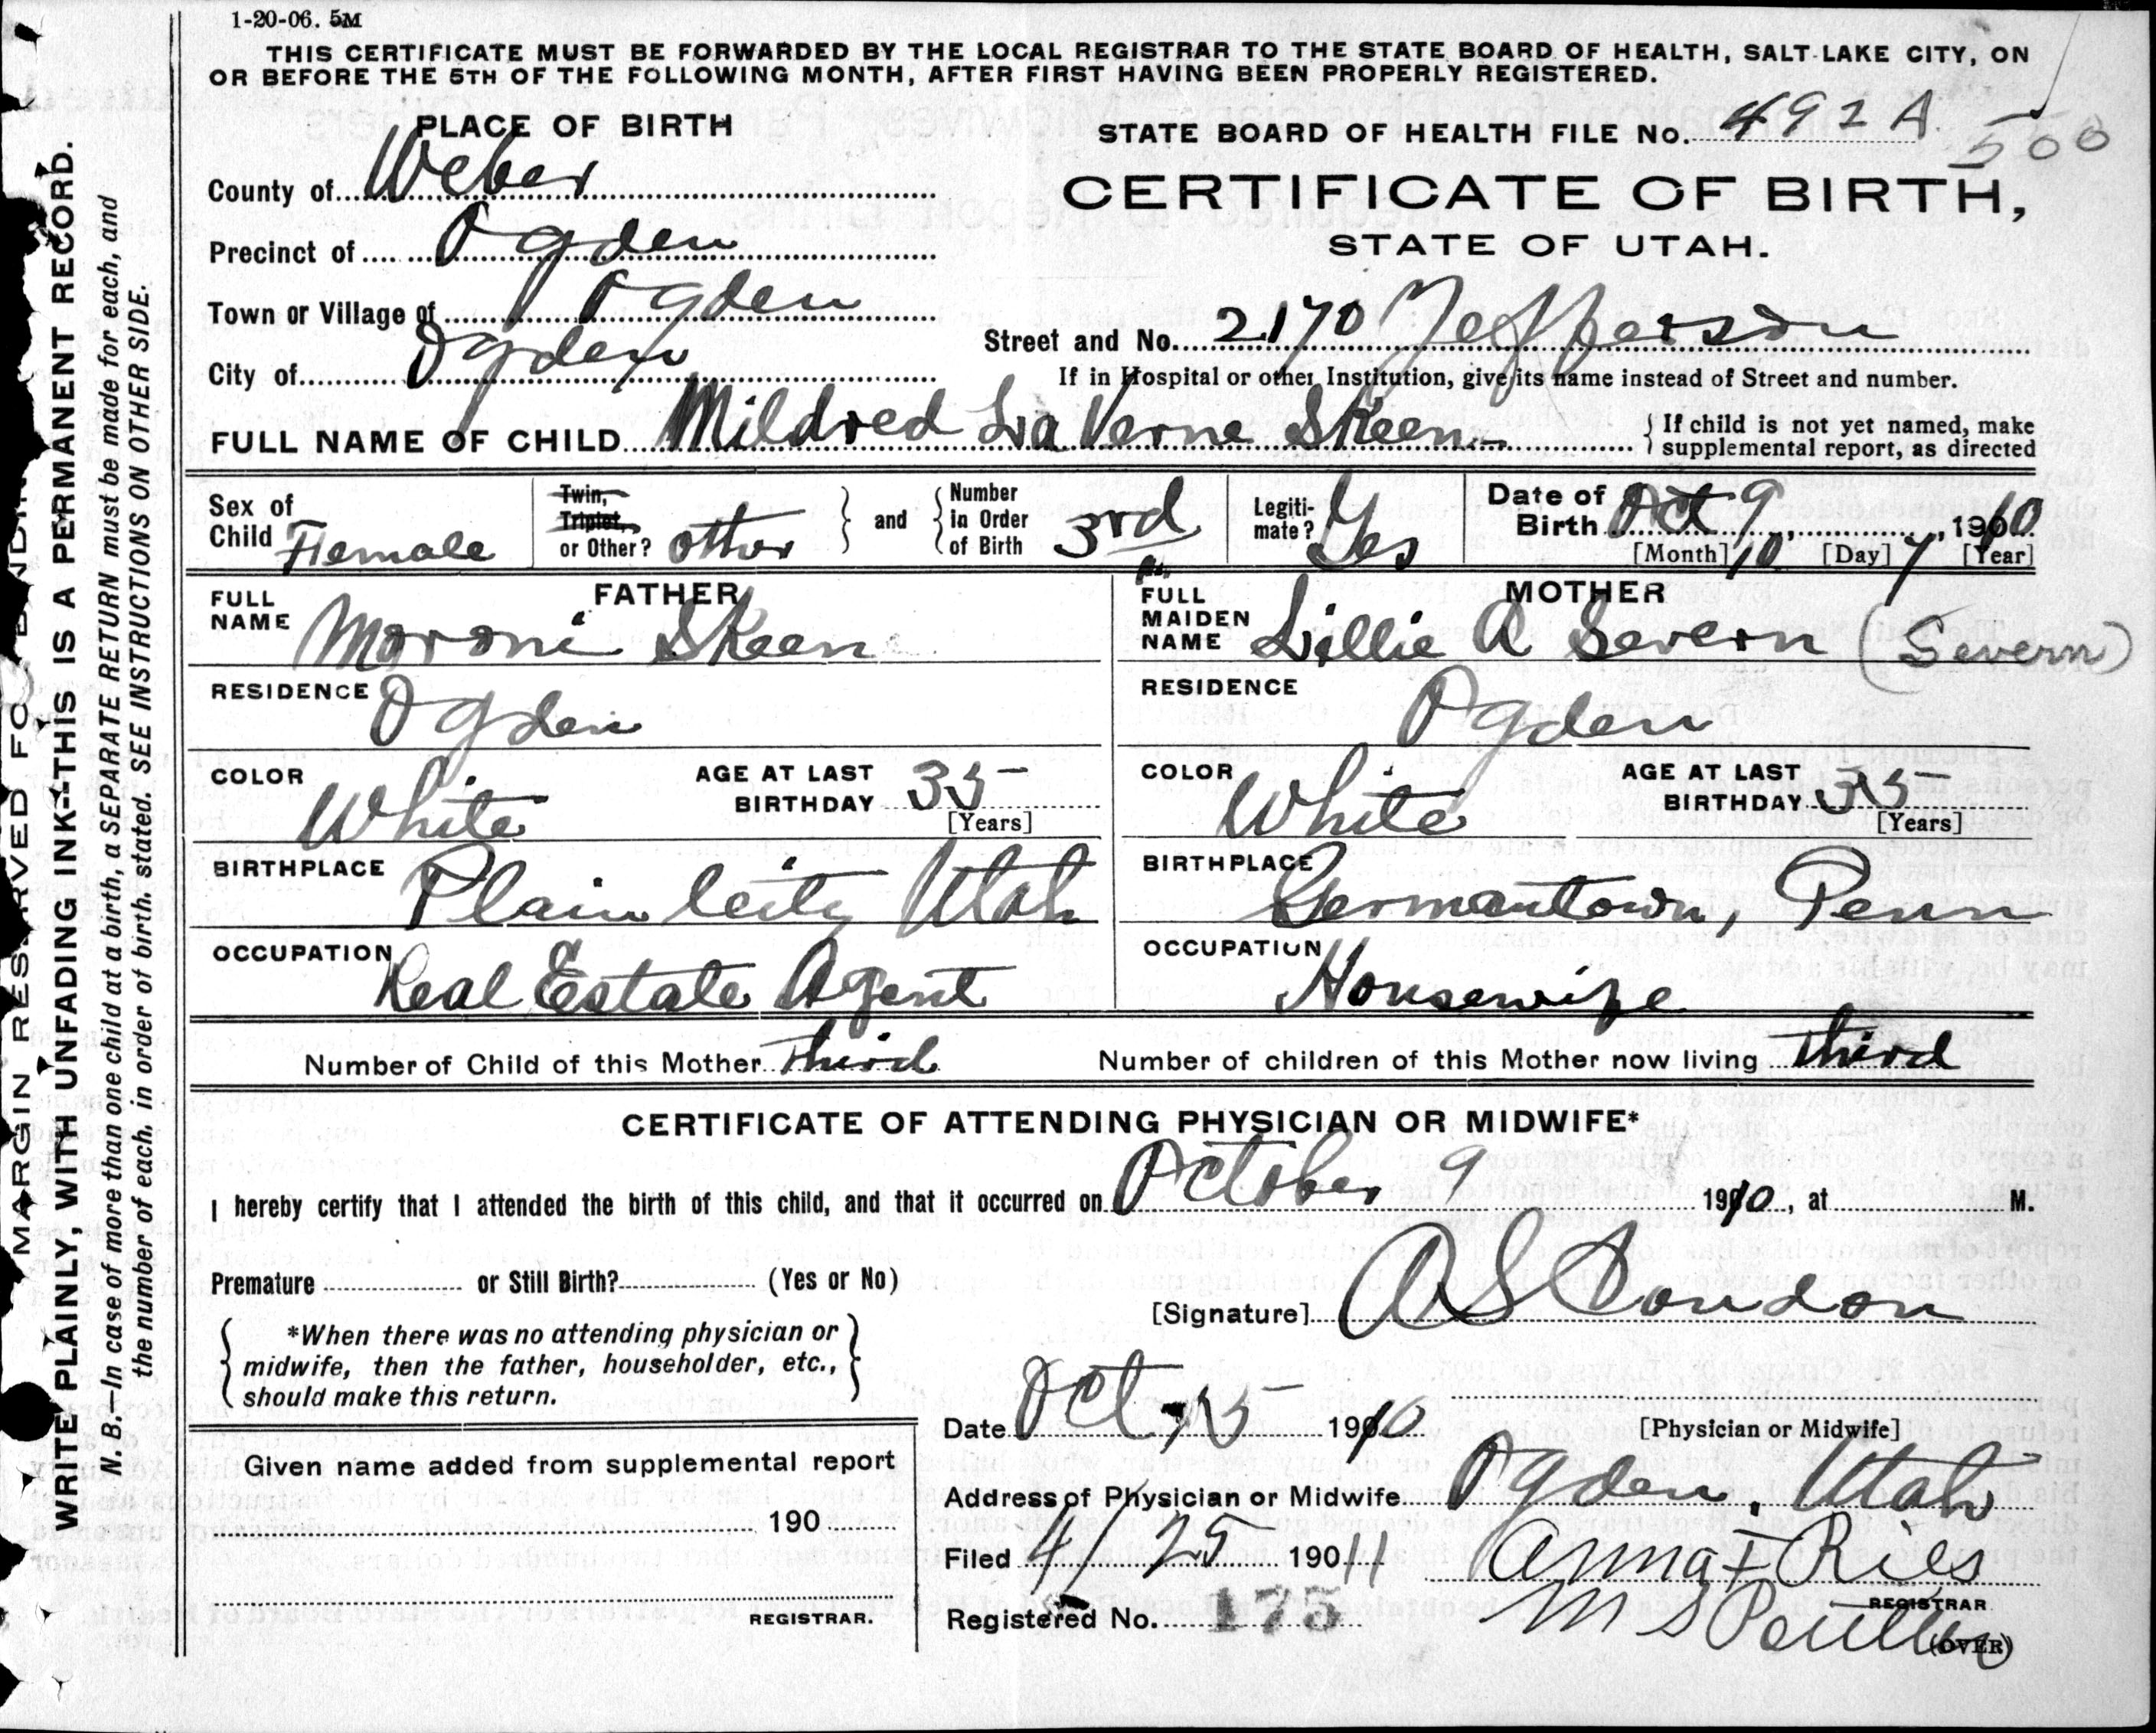 1-20-06. 5M
THIS CERTIFICATE MUST BE FORWARDED BY THE LOCAL REGISTRAR TO THE STATE BOARD OF HEALTH, SALT LAKE CITY, ON
OR BEFORE THE 5TH OF THE FOLLOWING MONTH, AFTER FIRST HAVING BEEN PROPERLY REGISTERED.
MARGIN RESERVED FOR BINDING
WRITE PLAINLY, WITH UNFADING INK--THIS IS A PERMANENT RECORD.
N. B.—In case of more than one child at a birth, a SEPARATE RETURN must be made for each, and
the number of each, in order of birth, stated. SEE INSTRUCTIONS ON OTHER SIDE.
PLACE OF BIRTH
County of Weber
Precinct of Ogden
Town or Village of Ogden
City of Ogden
STATE BOARD OF HEALTH FILE No. 492 A 500
CERTIFICATE OF BIRTH,
STATE OF UTAH.
Street and No. 2170 Jefferson
If in Hospital or other Institution, give its name instead of Street and number.
FULL NAME OF CHILD Mildred La Verne Skeen
If child is not yet named, make
supplemental report, as directed
Sex of
Child Female
Twin,
Triplet,
or Other? other
and
Number
in Order
of Birth 3rd
Legiti-
mate? Yes
Date of
Birth Oct 9, 1910
[Month] 10 [Day] 9 [Year]
FATHER
FULL
NAME Moroni Skeen
RESIDENCE Ogden
COLOR White
AGE AT LAST
BIRTHDAY 35
[Years]
BIRTHPLACE Plain City Utah
OCCUPATION Real Estate Agent
MOTHER
FULL
MAIDEN
NAME Lillie A Severn (Severn)
RESIDENCE Ogden
COLOR White
AGE AT LAST
BIRTHDAY 35
[Years]
BIRTHPLACE Germantown, Penn
OCCUPATION Housewife
Number of Child of this Mother third
Number of children of this Mother now living third
CERTIFICATE OF ATTENDING PHYSICIAN OR MIDWIFE*
I hereby certify that I attended the birth of this child, and that it occurred on October 9 1910, at M.
Premature or Still Birth? (Yes or No)
*When there was no attending physician or
midwife, then the father, householder, etc.,
should make this return.
[Signature] A S Condon
Date Oct 15 1910
[Physician or Midwife]
Given name added from supplemental report
190
REGISTRAR.
Address of Physician or Midwife Ogden, Utah
Filed 4/25 1911 Anna F Ries
REGISTRAR
Registered No. 175
M S
(OVER)